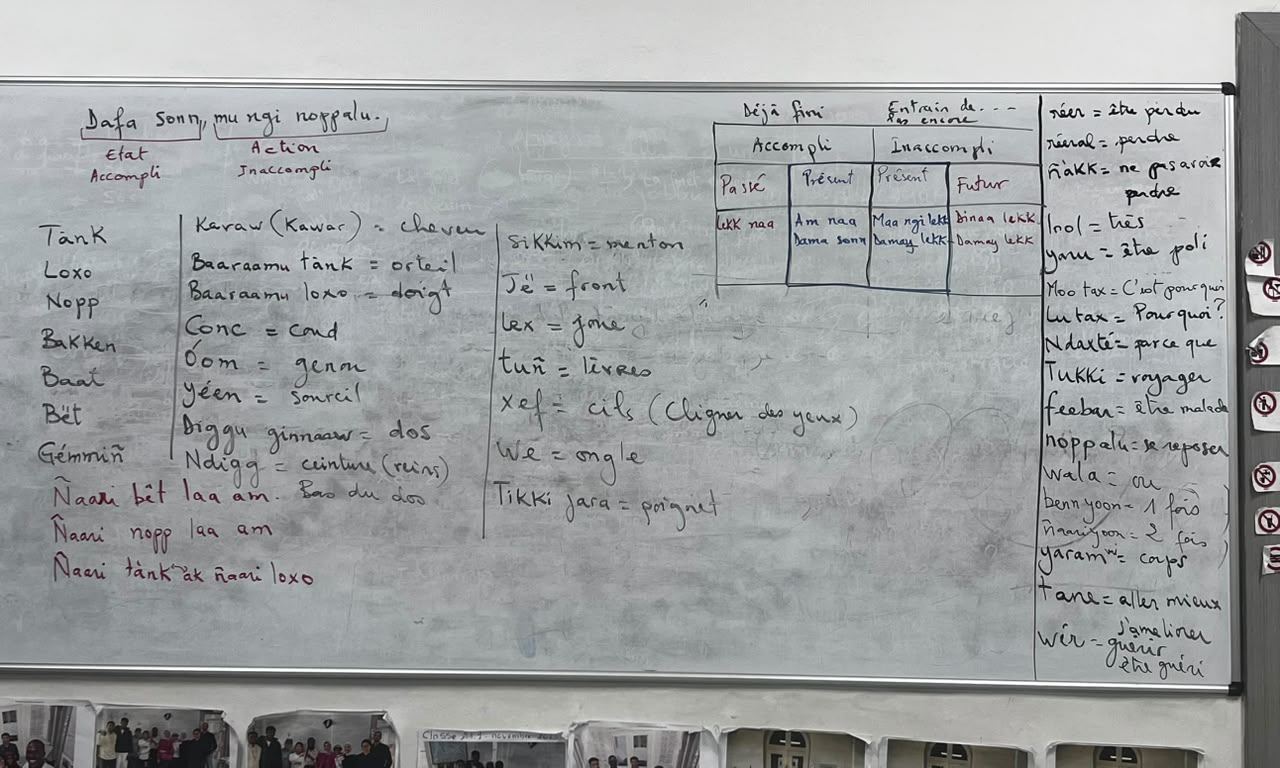 Dafa sonn, mu ngi noppalu.
Etat
Accompli
Action
Inaccompli
Tànk
Loxo
Nopp
Bakken
Baat
Bët
Gémmiñ
Ñaari bët laa am.
Ñaari nopp laa am
Ñaari tànk ak ñaari loxo
Karaw (Kawar) = cheveu
Baaraamu tànk = orteil
Baaraamu loxo = doigt
Conc = coud
Óom = genou
Yéen = sourcil
Diggu ginnaaw = dos
Ndigg = ceinture (reins)
Bas du dos
Sikkim = menton
Jë = front
Lex = joue
tuñ = lèvres
Xef = cils (Cligner des yeux)
We = ongle
Tikki jara = poignet
Déjà fini
Entrain de...
Pas encore
Accompli
Inaccompli
Passé
Présent
Présent
Futur
Lekk naa
Am naa
Dama sonn
Maa ngi lekk
Damay lekk
Dinaa lekk
Damay lekk
réer = être perdu
réeral = perdre
ñàkk = ne pas avoir
perdre
lool = très
yaru = être poli
Moo tax = C'est pourquoi
Lu tax = Pourquoi?
Ndaxté = parce que
Tukki = voyager
feebar = être malade
noppalu = se reposer
wala = ou
benn yoon = 1 fois
ñaari yoon = 2 fois
yaram wi = corps
tane = aller mieux
s'améliorer
wér = guérir
être guéri